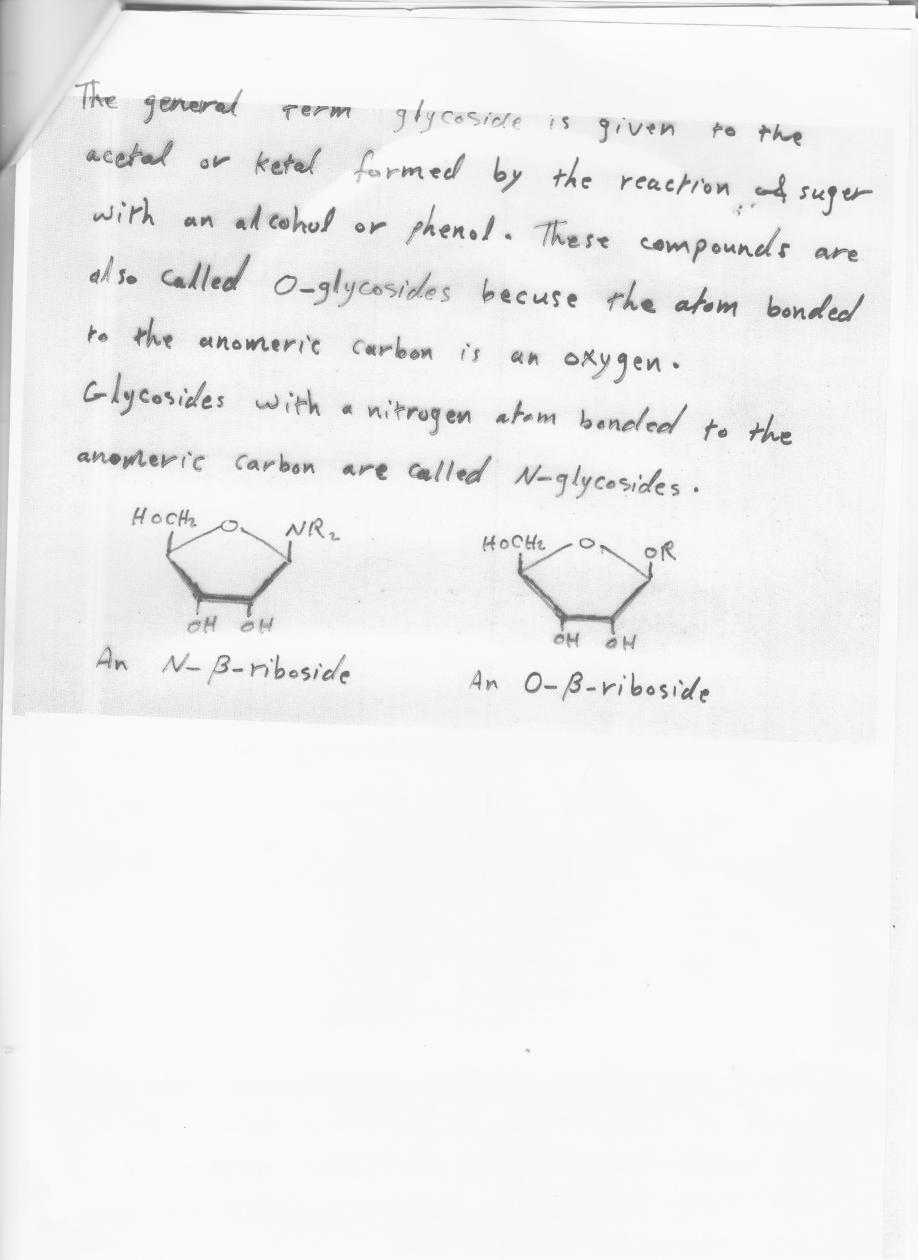 The general term glycoside is given to the
acetal or ketal formed by the reaction of suger
with an alcohol or phenol. These compounds are
also called O-glycosides becuse the atom bonded
to the anomeric carbon is an oxygen.
Glycosides with a nitrogen atom bonded to the
anomeric carbon are called N-glycosides.
HOCH₂ O NR₂ HOCH₂ O OR
OH OH OH OH
An N-β-riboside An O-β-riboside